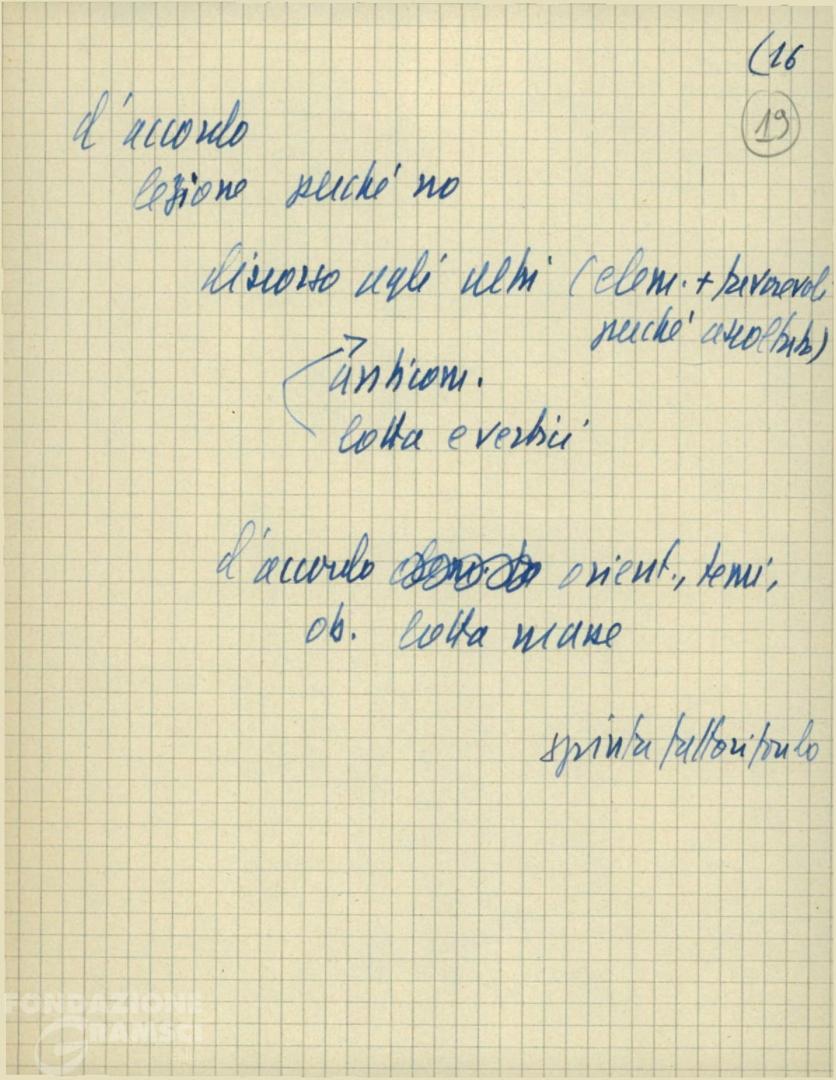 (16
19
d'accordo
lezione perché no
discorso agli altri (elem. + favorevoli
perché ascoltato)
anticom.
lotta e vertici
d'accordo orient., temi,
ob. lotta masse
spinta fattori fondo
FONDAZIONE
GRAMSCI